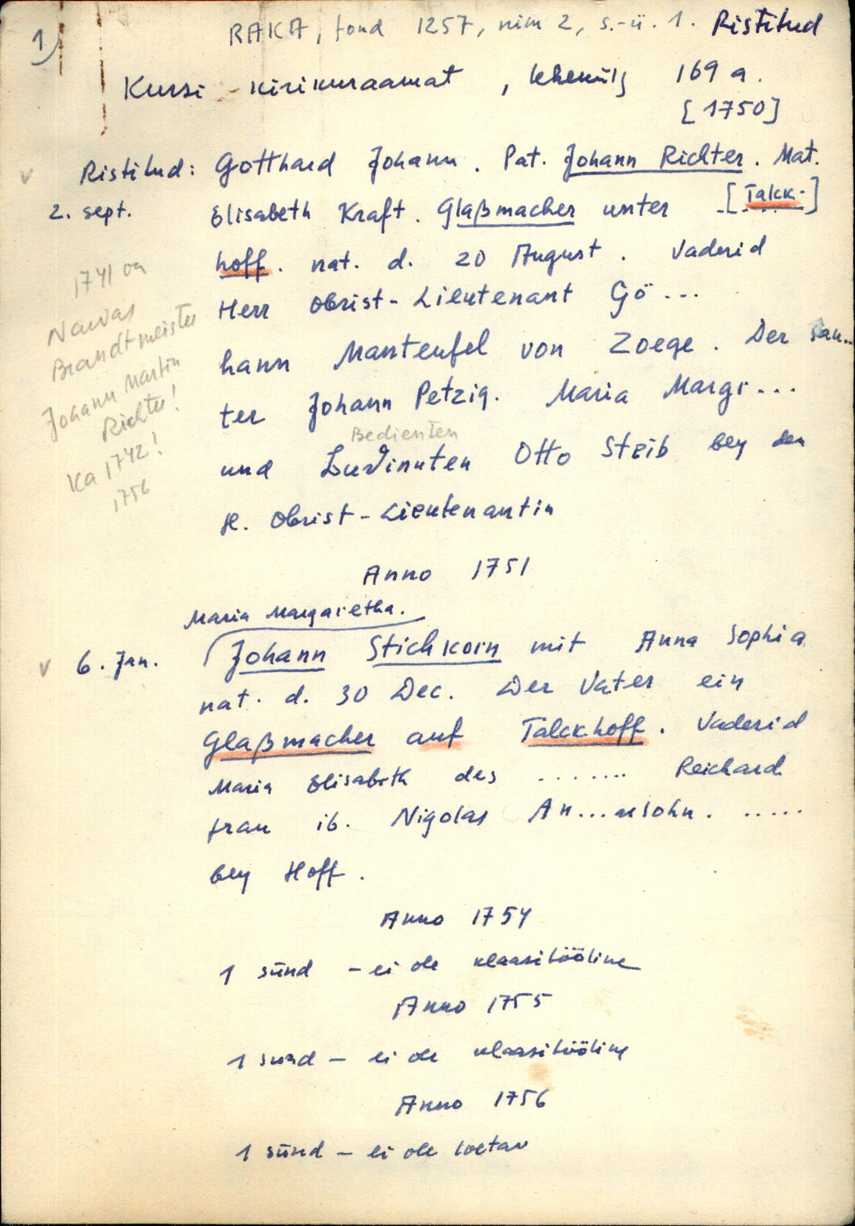 1)
RAKA, fond 1257, nim 2, s.-ü. 1. Ristitud
Kursi - kirikuraamat, lehekülg 169 a.
[1750]
Ristitud: Gotthard Johann. Pat. Johann Richter. Mat.
2. sept. Elisabeth Kraft. Glaßmacher unter [Talck-]
hoff. nat. d. 20 August. Vaderid
Herr Obrist-Lieutenant Gö...
hann Manteufel von Zoege. Der
ter Johann Petzig. Maria Margr...
Bedienten
und Otto Steib bey den
H. Obrist-Lieutenantin
1741 on
Narvas
Brandtmeister
Johann Martin
Richter!
Ka 1742!
1756
Anno 1751
Maria Margaretha.
6. Jan. Johann Stichkorn mit Anna Sophia
nat. d. 30 Dec. Der Vater ein
Glaßmacher auf Talckhoff. Vaderid
Maria Elisabeth des ....... Reichard
frau ib. Nigolas An...nsohn. .....
bey Hoff.
Anno 1754
1 sünd - ei ole klaasitööline
Anno 1755
1 sünd - ei ole klaasitööline
Anno 1756
1 sünd - ei ole loetav